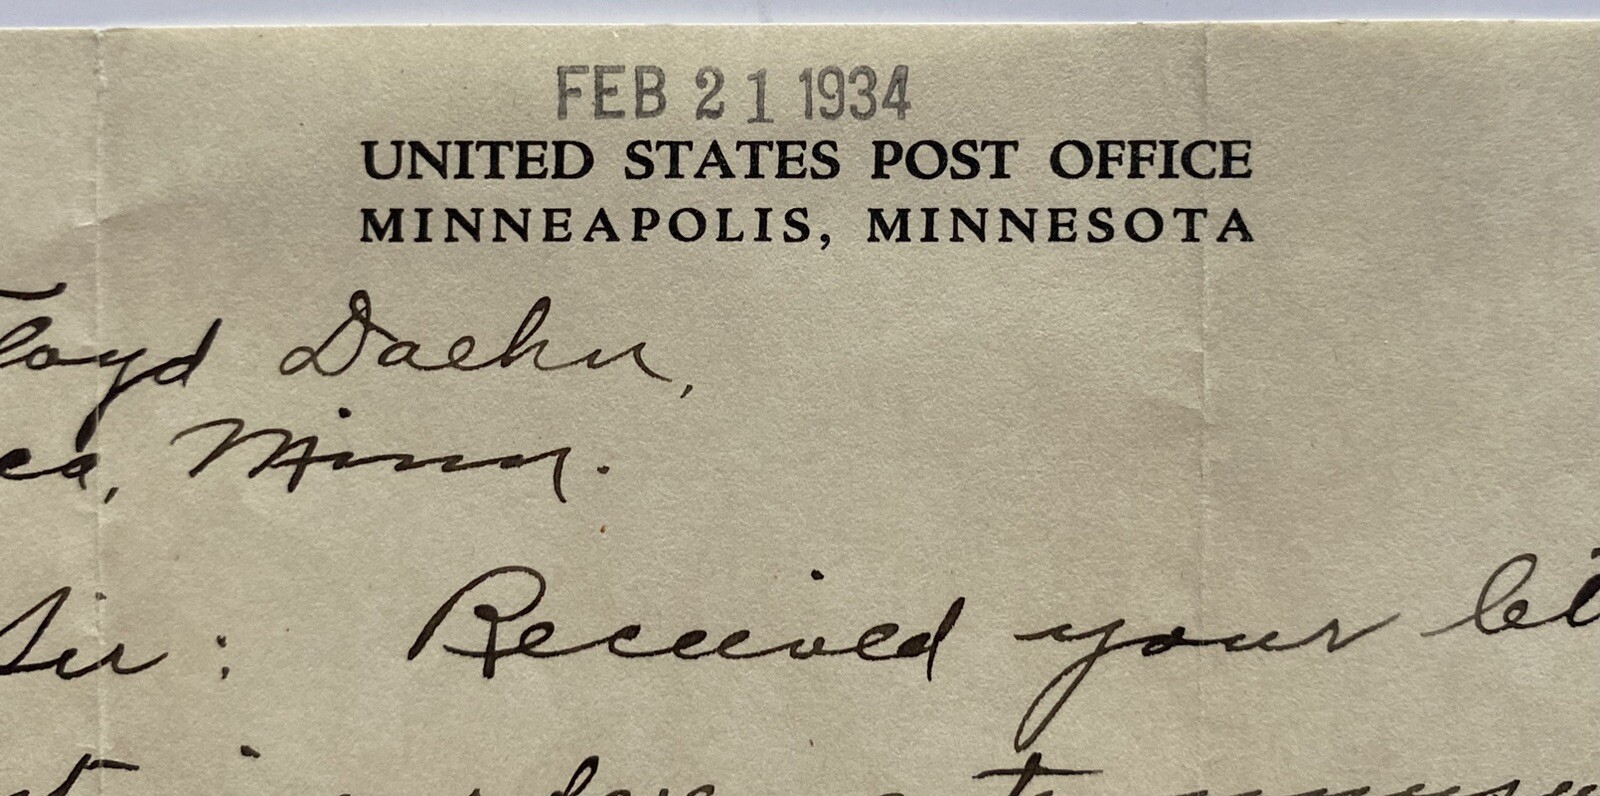 FEB 21 1934
UNITED STATES POST OFFICE
MINNEAPOLIS, MINNESOTA
loyd Daehn,
ca, Minn.
Sir: Received your let